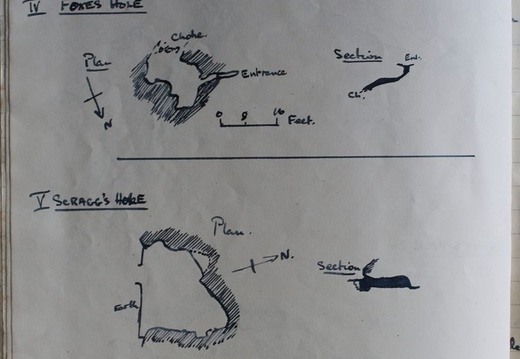 IV FOXES HOLE
Choke.
Plan
Section
Ent.
Entrance
Ch.
N
0 8 16
Feet.
V SCRAGG'S HOLE
Plan.
N.
Section
Earth